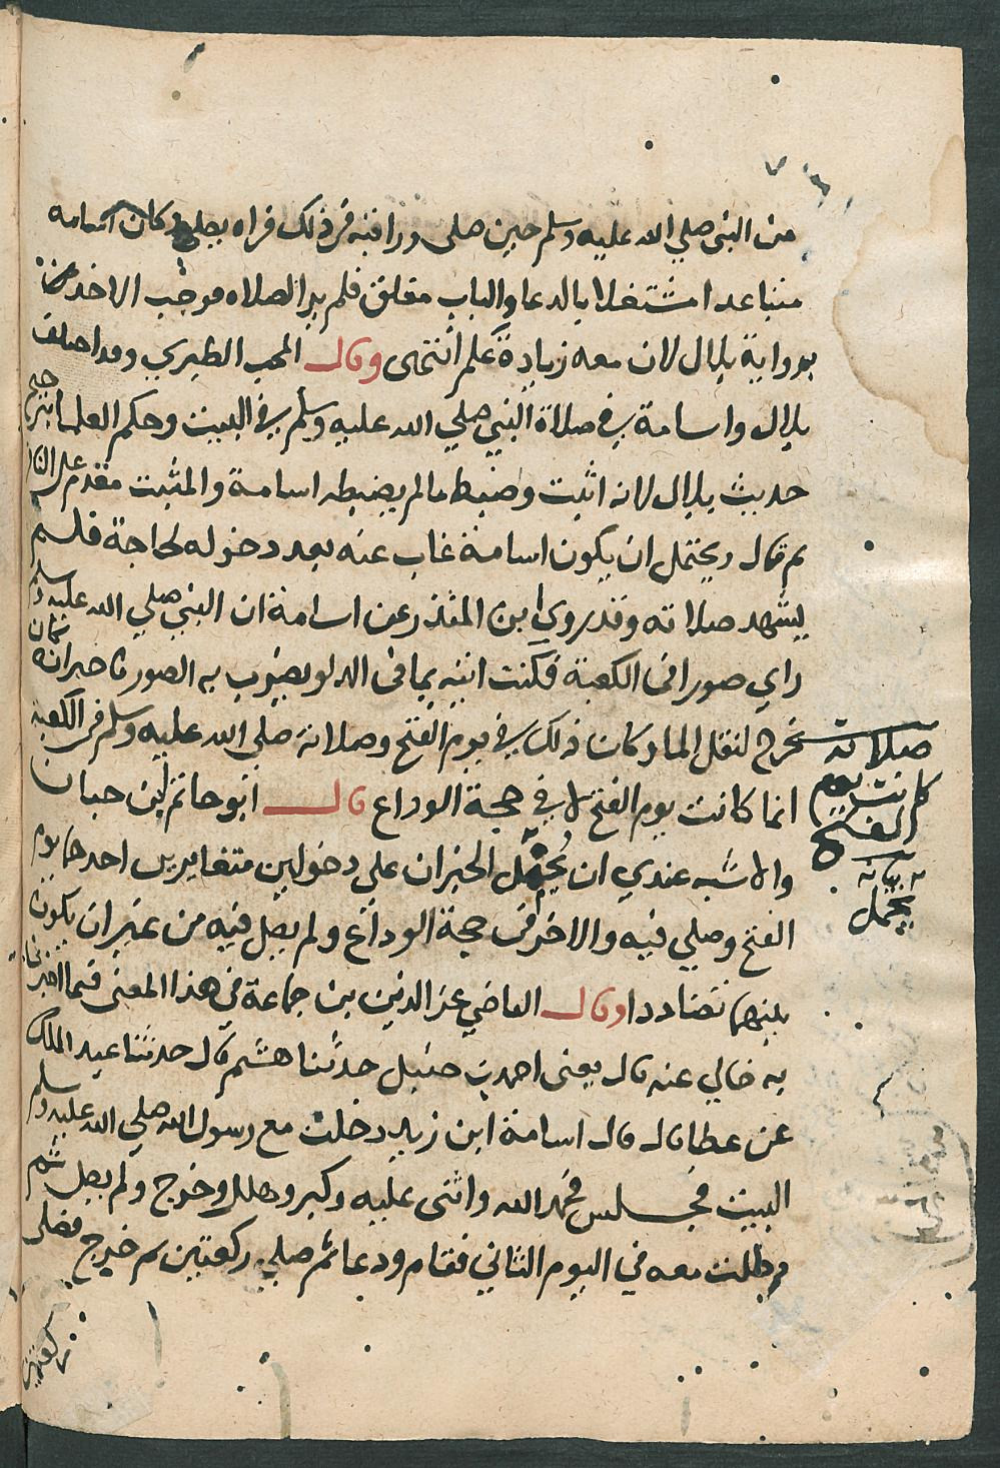 من النبي صلي الله عليه وسلم حين صلي وراقبه في ذلك فراه يصلي وكان اسامه
متباعدا مشتغلا بالدعا والباب مغلق فلم ير الصلاه فوجب الاخذ
برواية بلال لان معه زيادة علم انتهى وقال المحب الطبري وقد اختلف
بلال واسامة في صلاة النبي صلي الله عليه وسلم في البيت وحكم العلما بترجيح
حديث بلال لانه اثبت وضبط ما لم يضبطه اسامة والمثبت مقدم علي النافي
ثم قال ويحتمل ان يكون اسامة غاب عنه بعد دخوله لحاجة فلم
يشهد صلاته وقد روي ابن المنذر عن اسامة ان النبي صلي الله عليه وسلم
راي صورا في الكعبة فكنت اتيه بما في الدلو يضرب به الصور فاخبر انه كان
يخرج لنقل الما وكان ذلك في يوم الفتح وصلاته صلي الله عليه وسلم في الكعبة
انما كانت يوم الفتح لا في حجة الوداع قال ابو حاتم بن حبان
والاشبه عندي ان يحمل الخبران علي دخولين متغايرين احدهما يوم
الفتح وصلي فيه والاخر في حجة الوداع ولم يصل فيه من غير ان يكون
بينهما تضاددا وقال القاضي عز الدين بن جماعة في هذا المعنى فيما اخبرنا
به خالي عنه قال يعني احمد بن حنبل حدثنا هشيم قال حدثنا عبد الملك
عن عطا قال قال اسامة ابن زيد دخلت مع رسول الله صلي الله عليه وسلم
البيت فجلس فحمد الله واثنى عليه وكبر وهلل وخرج ولم يصل ثم
دخلت معه في اليوم الثاني فقام ودعا ثم صلي ركعتين ثم خرج فصلي
ركعتين
صلاته
كانت يوم
الفتح
يحمل